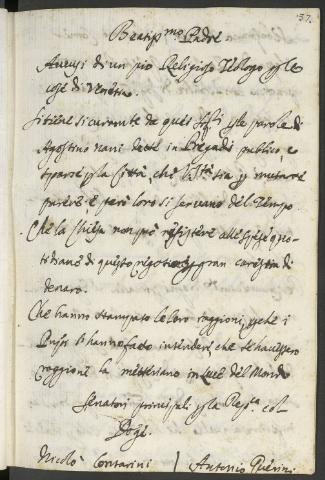 37.
Beatiss.mo Padre
Avvisi di un pio Religioso Teologo p le
cose di Venetia.
Si tiene sicuramte da questi p le parole di
Agostino nani dette in Pregadi publico, e
sparse p la Città, che V. Stà sia p mutarsi
parere, e però loro si servano del Tempo
Che la Chiesa non può resistere alle spese quo-
tidiane di questo p gran carestia di
denaro.
Che hanno stampato le loro raggioni, pchè i
hanno fatto intendere che se havessero
raggione la metteriano in luce del Mondo
Senatori principali p la Rep.ca col
Doge.
Nicolò Contarini | Antonio Querini